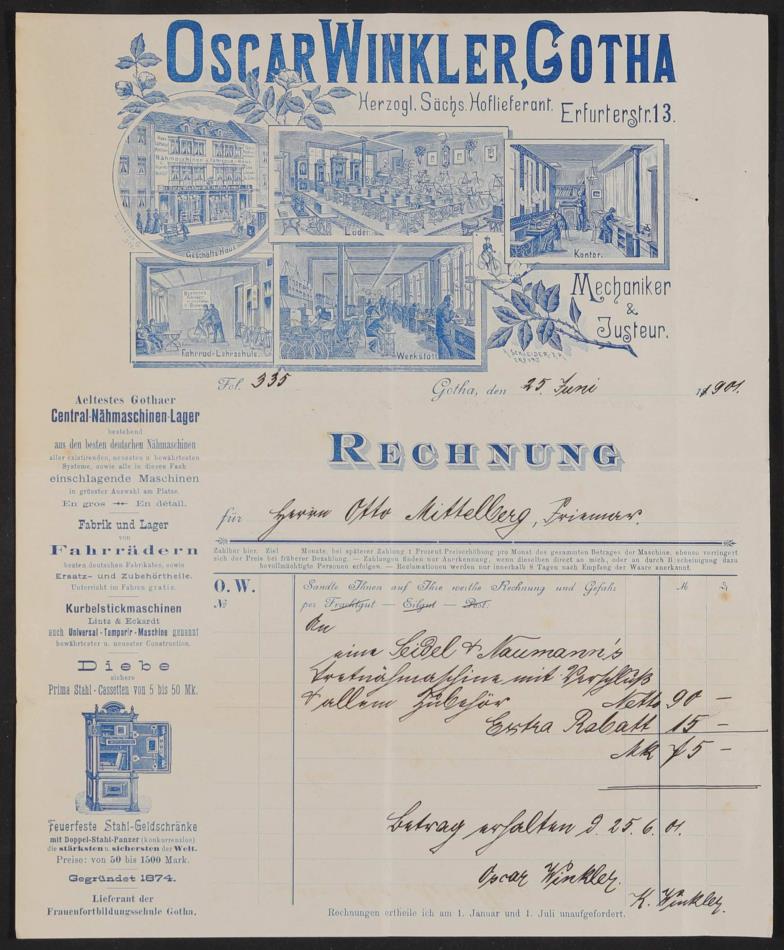 OSCAR WINKLER, GOTHA
Herzogl. Sächs. Hoflieferant. Erfurterstr. 13.
Nähmaschinen & Fahrrad
Geschäfts Haus
Laden
Kontor.
Fahrrad-Lehrschule.
Werkstatt
Mechaniker
&
Justeur.
Fol. 335 Gotha, den 25. Juni 1901.
Aeltestes Gothaer
Central-Nähmaschinen-Lager
bestehend
aus den besten deutschen Nähmaschinen
aller existirenden, neuesten u. bewährtesten
Systeme, sowie alle in dieses Fach
einschlagende Maschinen
in grösster Auswahl am Platze.
En gros En détail.
Fabrik und Lager
von
Fahrrädern
besten deutschen Fabrikates, sowie
Ersatz- und Zubehörtheile.
Unterricht im Fahren gratis.
Kurbelstickmaschinen
Lintz & Eckardt
auch Universal-Tamburir-Maschine genannt
bewährtester u. neuester Construction.
Diebe
sichere
Prima Stahl-Cassetten von 5 bis 50 Mk.
Feuerfeste Stahl-Geldschränke
mit Doppel-Stahl-Panzer (konkurrenzlos)
die stärksten u. sichersten der Welt.
Preise: von 50 bis 1500 Mark.
Gegründet 1874.
Lieferant der
Frauenfortbildungsschule Gotha.
RECHNUNG
für Herrn Otto Mittelberg, Friemar.
Zahlbar hier. Ziel Monate, bei späterer Zahlung 1 Prozent Preiserhöhung pro Monat des gesammten Betrages der Maschine, ebenso verringert
sich der Preis bei früherer Bezahlung. — Zahlungen finden nur Anerkennung, wenn dieselben direct an mich, oder an durch Bescheinigung dazu
bevollmächtigte Personen erfolgen. — Reclamationen werden nur innerhalb 8 Tagen nach Empfang der Waare anerkannt.
O. W. Sandte Ihnen auf Ihre werthe Rechnung und Gefahr M
№ per Frachtgut — Eilgut — Post.
An
eine Seidel & Naumann's
Tretnähmaschine mit Verschluß
& allem Zubehör Netto 90 –
Extra Rabatt 15 –
Mk 75 –
Betrag erhalten d. 25. 6. 01.
Oscar Winkler.
K. Winkler.
Rechnungen ertheile ich am 1. Januar und 1. Juli unaufgefordert.